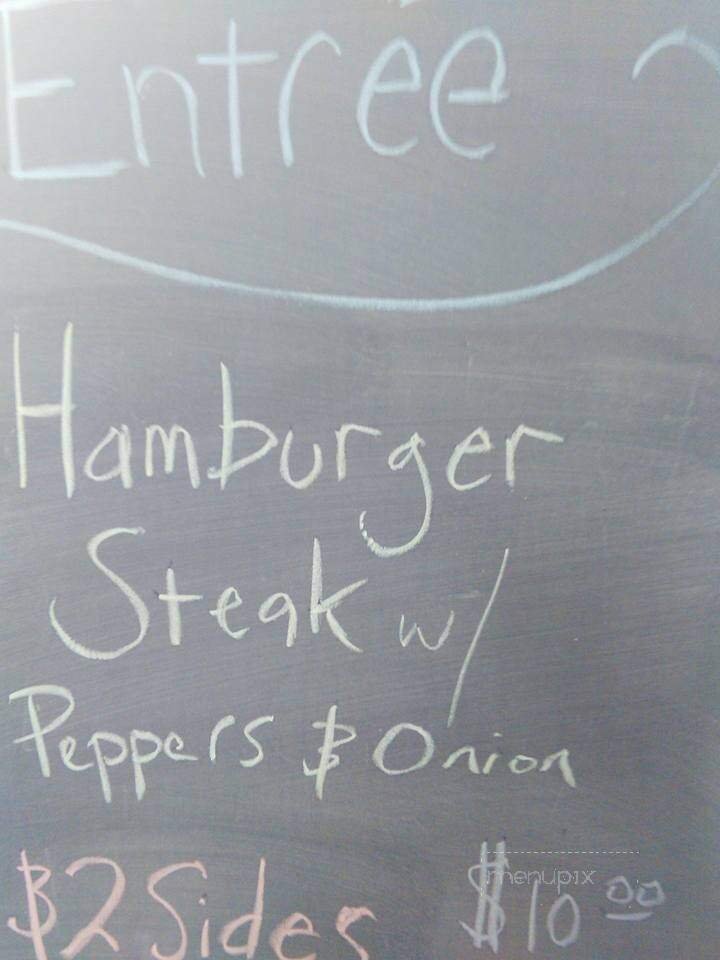 Entrée
Hamburger
Steak w/
Peppers & Onion
& 2 Sides $10.00
menupix